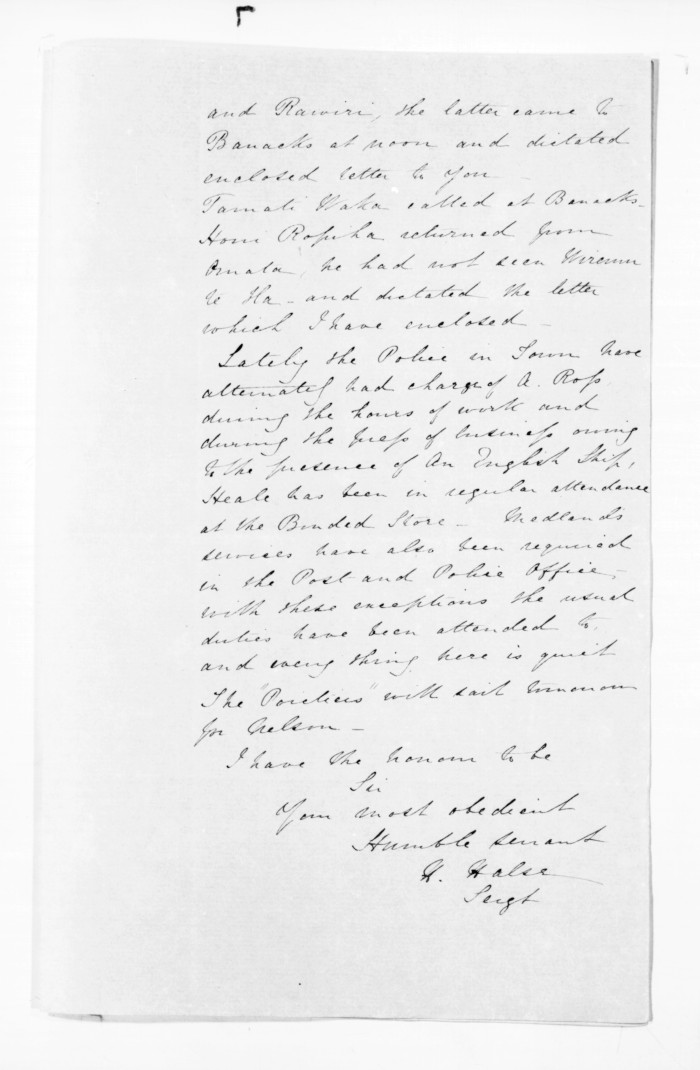 and Rawiri, the latter came to
Barracks at noon and dictated
enclosed letter to you —
Tamati Waka called at Barracks —
Honi Ropiha returned from
Omata, he had not seen Wiremu
te Ha — and dictated the letter
which I have enclosed —
Lately the Police in Town have
alternately had charge of A. Ross
during the hours of work and
during the press of business owing
to the presence of An English Ship,
Heale has been in regular attendance
at the Bonded Store — Medland's
services have also been required
in the Post and Police Office,
with these exceptions the usual
duties have been attended to,
and every thing here is quiet
The " " will sail tomorrow
for Nelson —
I have the honour to be
Sir
Your most obedient
Humble servant
H. Halse
Sergt